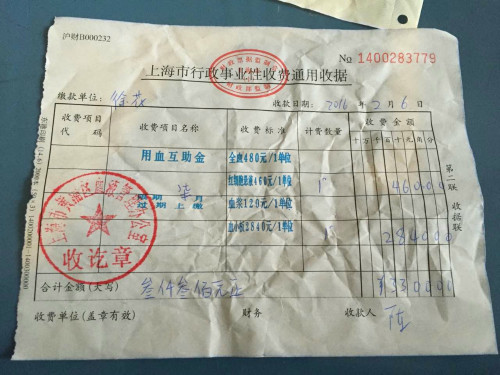 沪财B000232
№ 1400283779
上海市行政事业性收费通用收据
缴款单位： 收款日期：2016年2月6日
收费项目代码 收费项目名称 收费标准 计费数量 收费金额
十万千百十元角分
用血互助金 全血480元/1单位
460元/1单位 460000
逾期 月 血浆120元/1单位
过期上缴 血小板2840元/1单位 284000
收讫章
合计金额(大写) 叁仟叁佰元正 ¥330000
收费单位(盖章有效) 财务 收款人
第二联 收据联